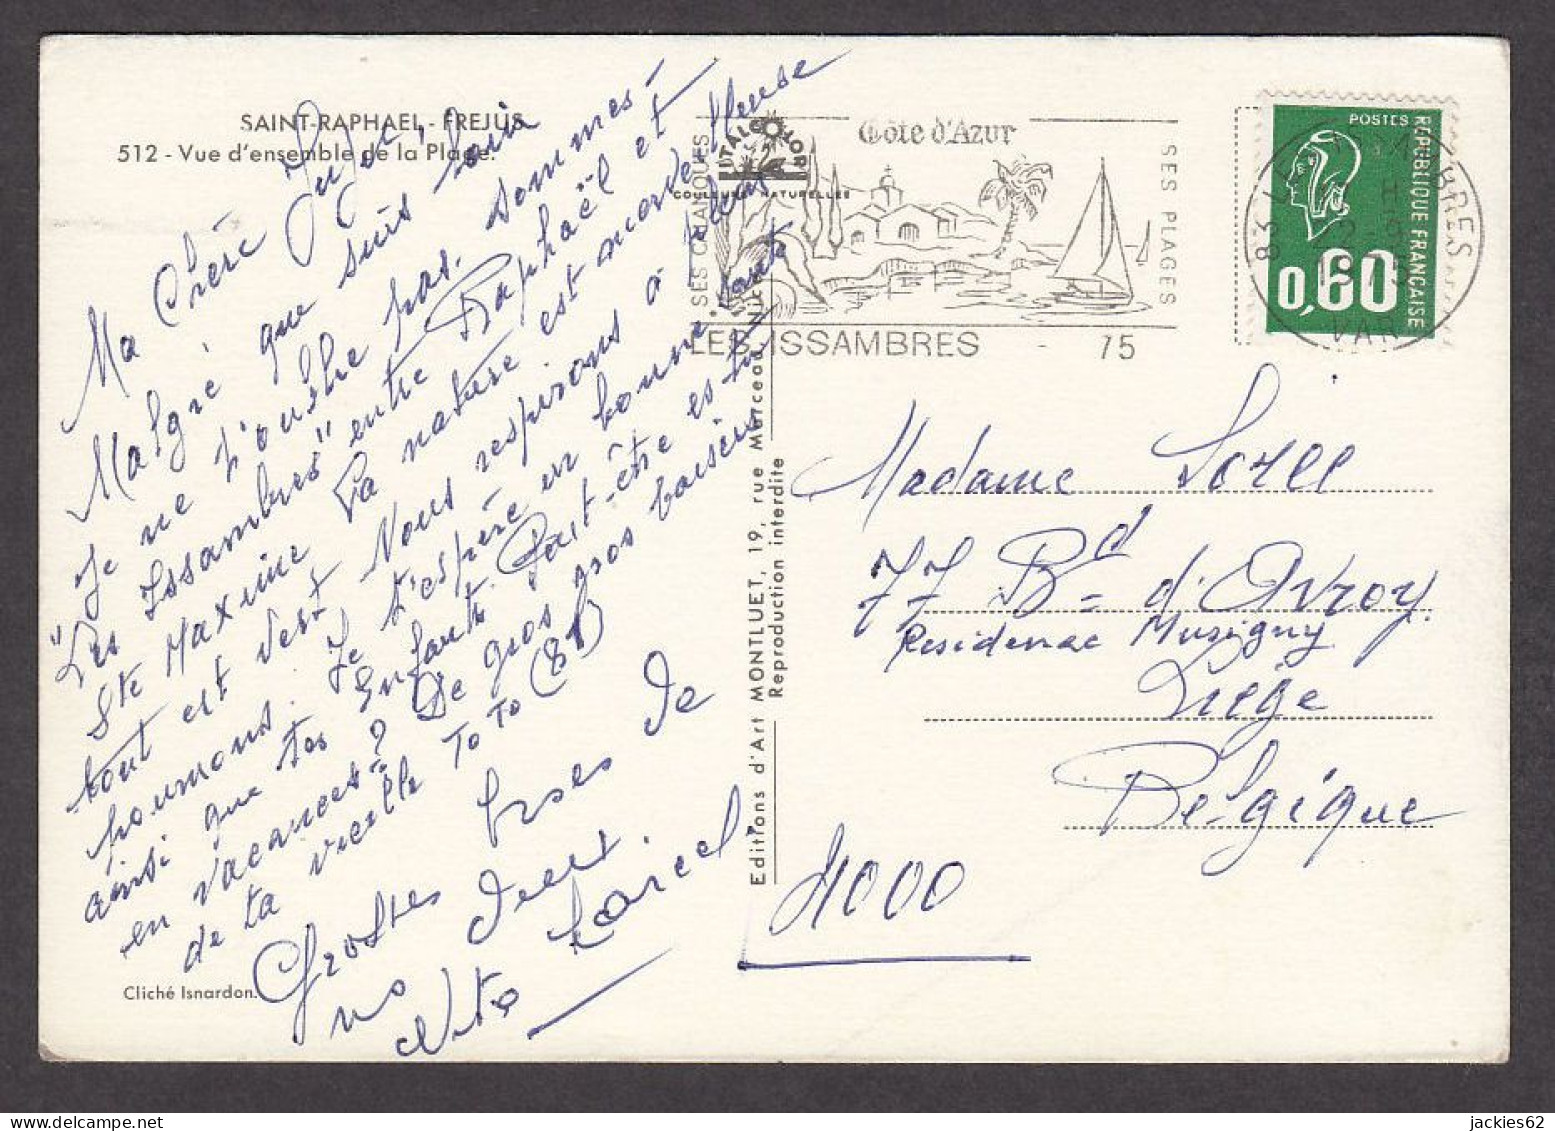 SAINT-RAPHAEL - FREJUS
512 - Vue d'ensemble de la Plage.
Ma Chère Juju!
Malgré que suis loin
Je ne t'oublie pas. sommes
"Les Issambres" entre Raphaël et
Ste Maxime La nature est
tout est vert Nous respirons à pleins
poumons. Je t'espère en bonne santé
ainsi que tes enfants. Peut-être es tu
en vacances? De gros gros baisers
de ta vieille TOTO (81)
Grosses bises de
nos deux
Marcel
ITALCOLOR
COULEURS NATURELLES
Editions d'Art MONTLUET, 19, rue Marceau, NICE
Reproduction interdite
Cliché Isnardon.
SES CALANQUES
Côte d'Azur
SES PLAGES
LES ISSAMBRES - 75
83 LES ISSAMBRES
VAR
POSTES
REPUBLIQUE FRANÇAISE
0,60
Madame
77 Bd d'Avroy.
Residence Musigny
Liège
Belgique
4000
jackies62